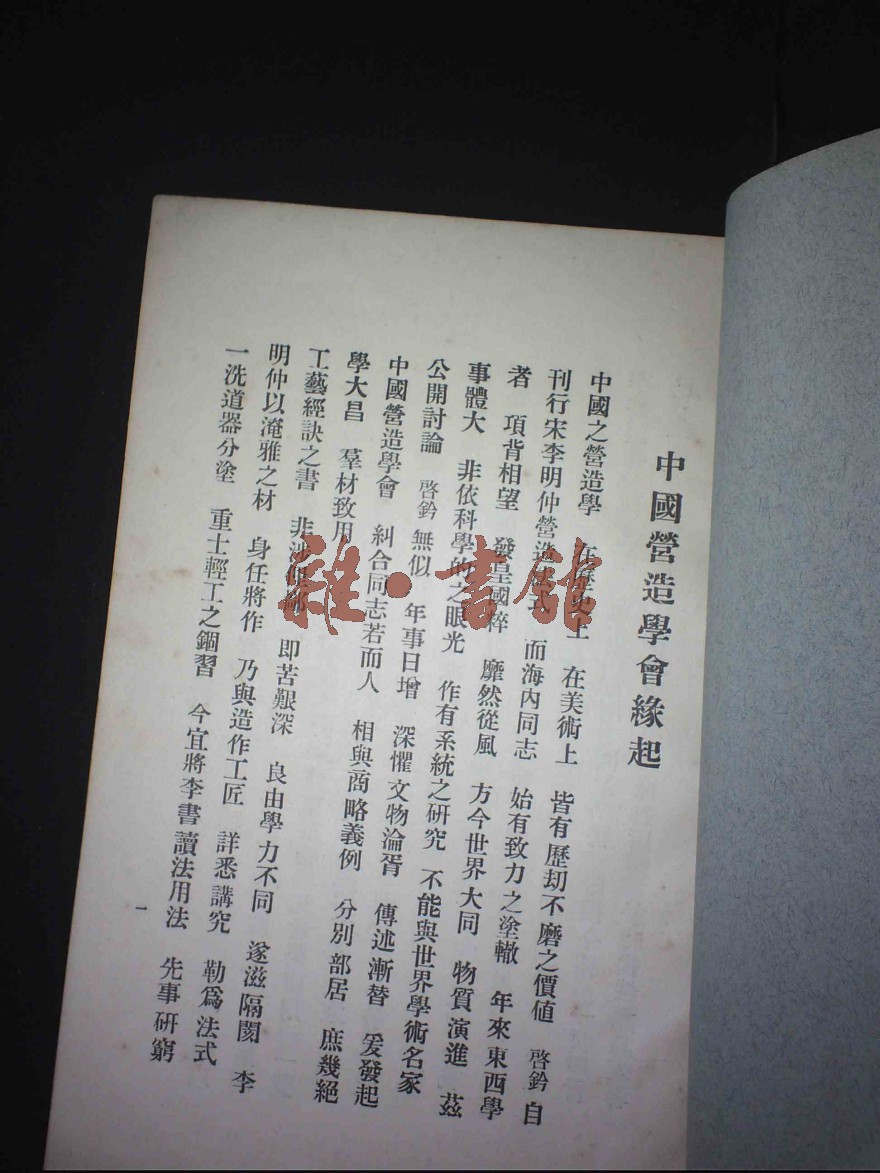 中國營造學會緣起
中國之營造學　在歷史上　在美術上　皆有歷刧不磨之價値　啓鈐自
刊行宋李明仲營造法式　而海內同志　始有致力之塗轍　年來東西學
者　項背相望　發皇國粹　靡然從風　方今世界大同　物質演進　茲
事體大　非依科學的之眼光　作有系統之研究　不能與世界學術名家
公開討論　啓鈐無似　年事日增　深懼文物淪胥　傳述漸替　爰發起
中國營造學會　糾合同志若而人　相與商略義例　分別部居　庶幾絕
學大昌　羣材致用
工藝經訣之書　非涉俚鄙　即苦艱深　良由學力不同　遂滋隔閡　李
明仲以淹雅之材　身任將作　乃與造作工匠　詳悉講究　勒爲法式
一洗道器分塗　重士輕工之錮習　今宜將李書讀法用法　先事研窮
一
雜·書館